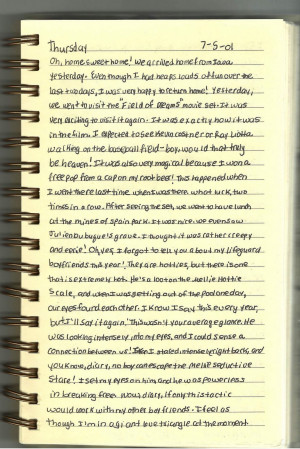 Thursday 7-5-01
Oh, home sweet home! We arrived home from Iowa
yesterday. Even though I had heaps loads of fun over the
last two days, I was very happy to return home! Yesterday,
we went to visit the "Field of Dreams" movie set. It was
very exciting to visit it again. It was exactly how it was
in the film. I expected to see Kevin Costner or Ray Liotta
walking on the baseball field - boy, would that truly
be heaven! It was also very magical because I won a
free pop from a cup on my root beer! This happened when
I went there last time when I was there. What luck, two
times in a row. After seeing the set, we went to have lunch
at the mines of Spain park. It was nice. We even saw
Julien Dubuque's grave. I thought it was rather creepy
and eerie! Oh yes, I forgot to tell you about my lifeguard
boyfriends this year! They are hotties, but there is one
that is extremely hot. He's a 10 on the Mellie Hottie
Scale, and when I was getting out of the pool one day,
our eyes found each other. I know I say this every year,
but I'll say it again. This wasn't your average glance. He
was looking intensely into my eyes, and I could sense a
connection between us! I stared intensely right back, and
you know, diary, no boy can escape the Mellie seductive
Stare! I set my eyes on him and he was powerless
in breaking free. Now, diary, if only this tactic
would work with my other boyfriends. I feel as
though I'm in a giant love triangle at the moment